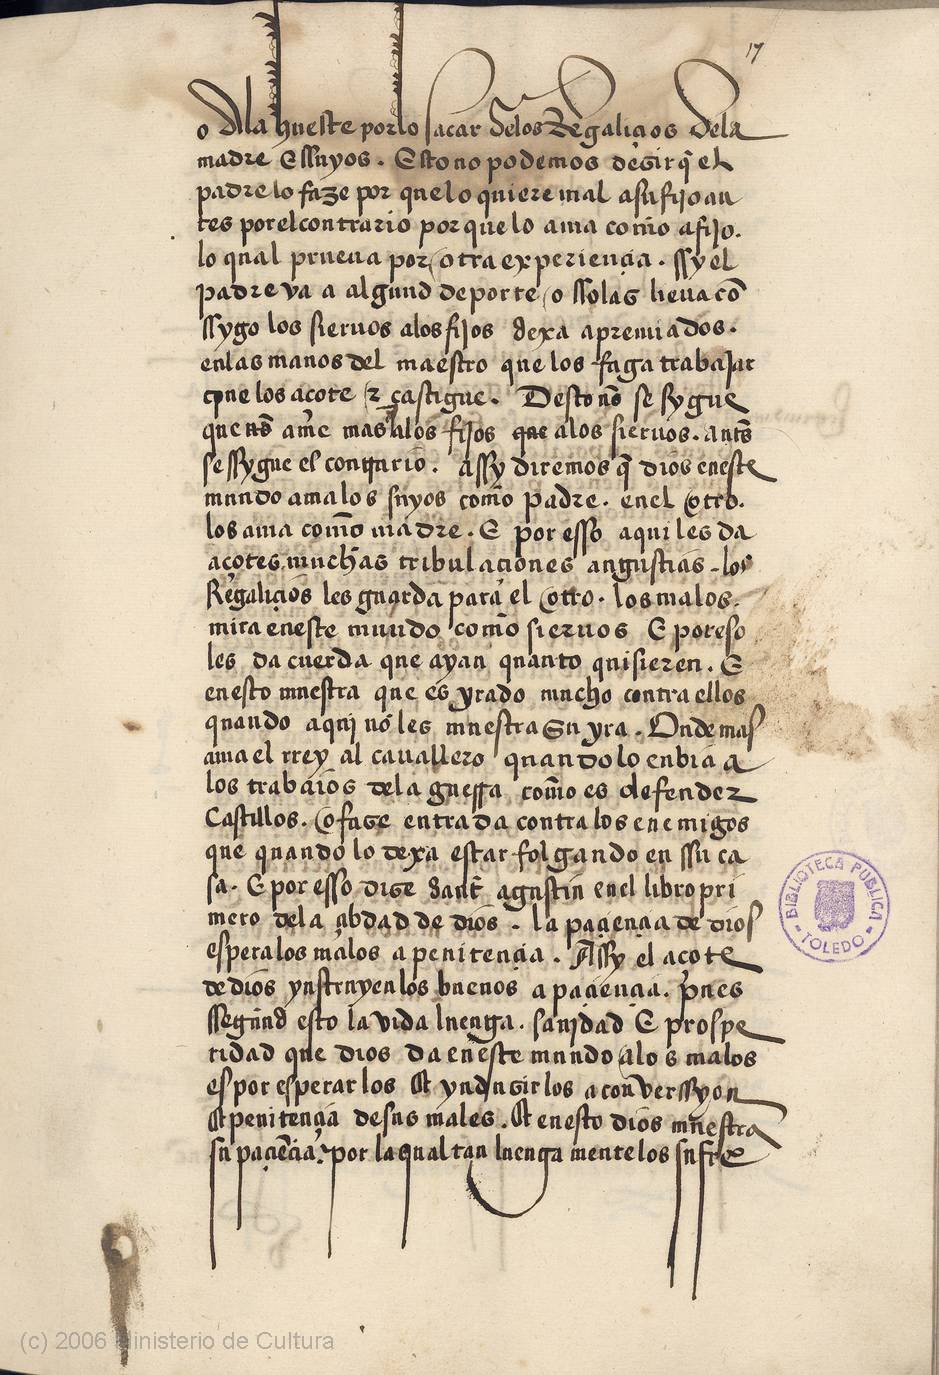 17
o A la hueste por lo sacar delos Regaliçios dela
madre E ssuyos . Esto no podemos dezir q̃ el
padre lo faze por que lo quiere mal a su fijo an
tes por el contrario por que lo ama com̃o a fijo.
lo qual prueua por otra experiençia . ssy el
padre va a algund deporte o ssolas lieua cõ
ssygo los sieruos alos fijos dexa apremiados.
en las manos del maestro que los faga trabajar
que los açote z castigue . Desto nõ se sygue
que nõ ame mas alos fijos que alos sieruos. antes
se ssygue el contrario . assy diremos q̃ dios en este
mundo ama los suyos com̃o padre . en el otro.
los ama com̃o madre . E por esso aqui les da
açotes muchas tribulaçiones angustias . los
Regaliçios les guarda para el otro . los malos.
mira en este mundo com̃o sieruos E por eso
les da cuerda que ayan quanto quisieren . E
en esto muestra que es yrado mucho contra ellos
quando aqui nõ les muestra su yra . Onde mas
ama el rrey al cauallero quando lo enbia a
los trabaios dela guerra com̃o es defender
Castillos . O faze entrada contra los enemigos
que quando lo dexa estar folgando en ssu ca
sa . E por esso dize sant agustin en el libro pri
mero dela çibdad de dios . la paçençia de dios
espera los malos a penitençia . Assy el açote
de dios ynstruyen los buenos a paçençia . pues
ssegund esto la vida luenga . sanjdad E prospe
ridad que dios da en este mundo alos malos
es por esperar los Et ynduzir los a conuerssyon
Et penitençia de sus males . Et en esto dios muestra
su paçẽçia . por la qual tan luenga mente los sufre
BIBLIOTECA PUBLICA
- TOLEDO -
(c) 2006 Ministerio de Cultura